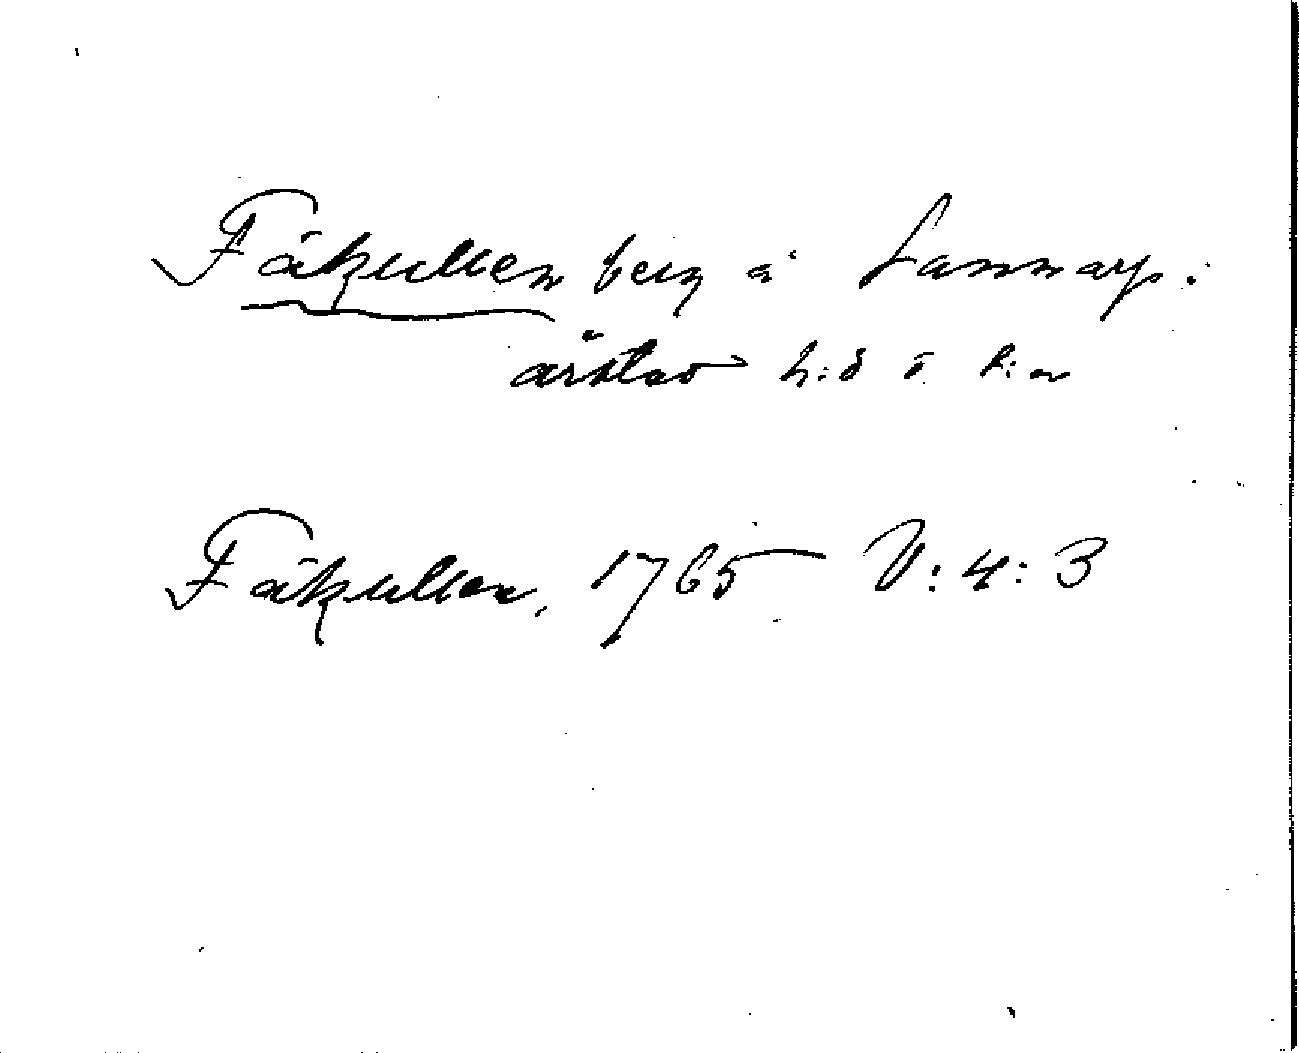 Fäkullen berg å Sannarp.
årstad h:d i k:n
Fäkullen, 1765 V:4:3